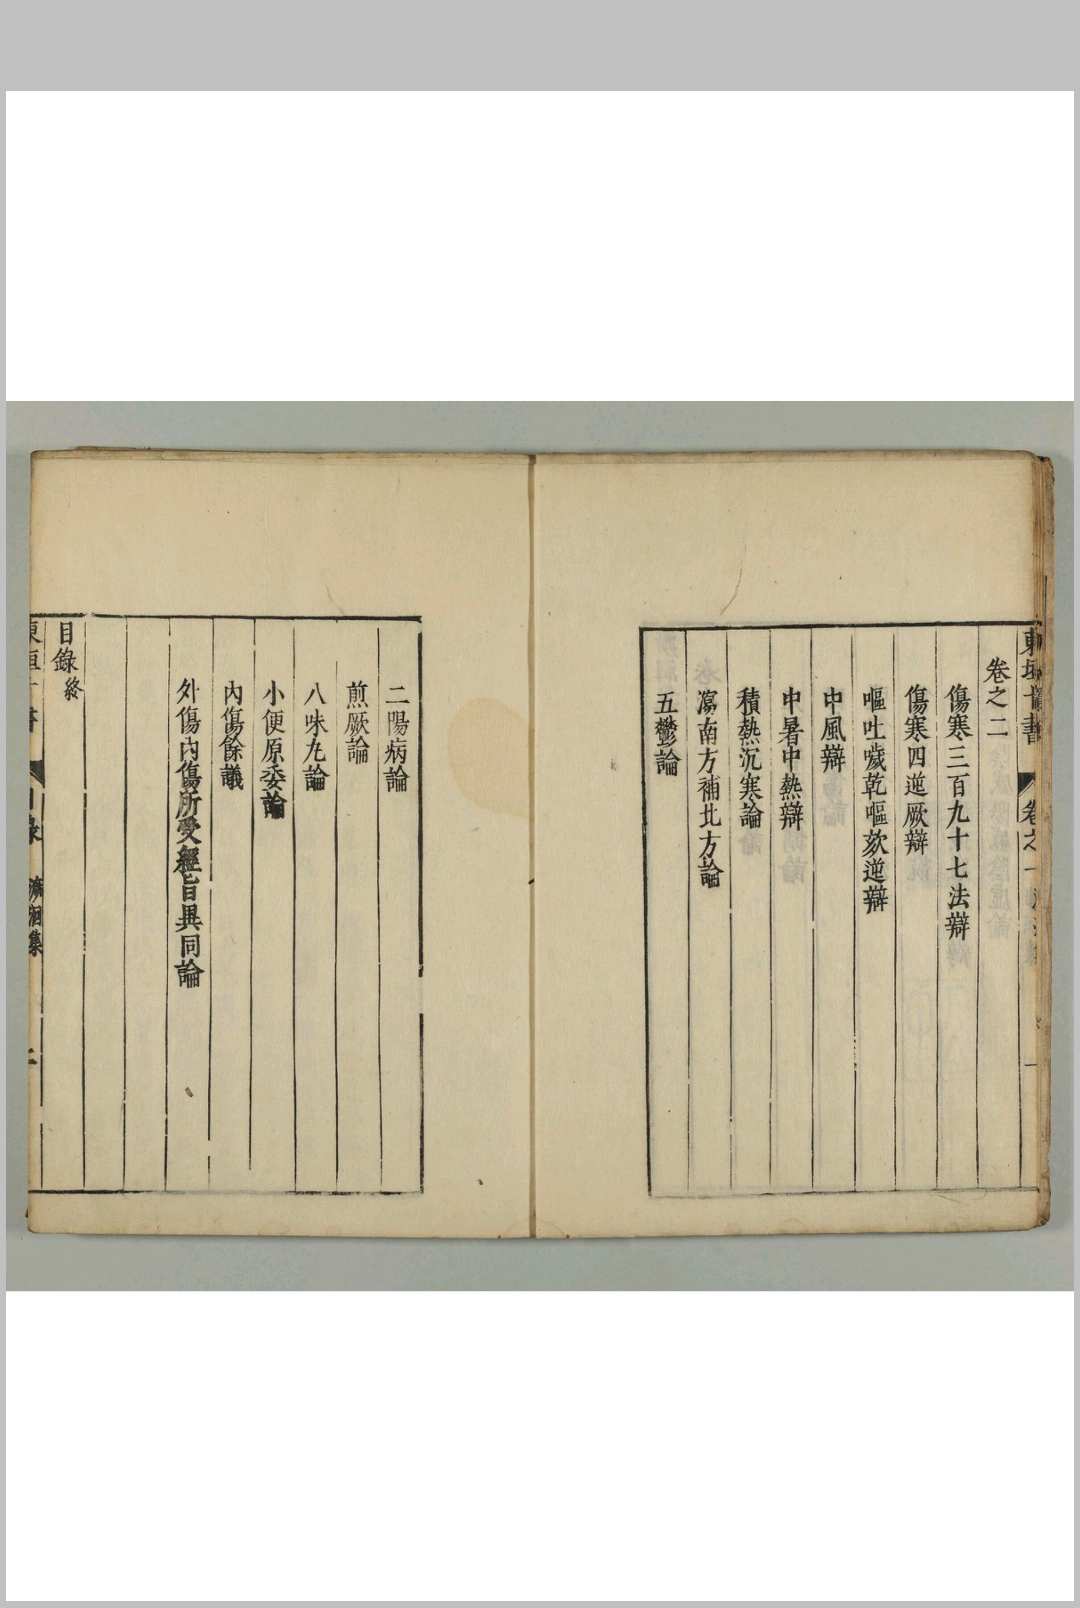 東垣十書
卷之二
傷寒三百九十七法辯
傷寒四逆厥辯
嘔吐噦乾嘔欬逆辯
中風辯
中暑中熱辯
積熱沉寒論
瀉南方補北方論
五鬱論
二陽病論
煎厥論
八味丸論
小便原委論
內傷餘議
外傷內傷所受經旨異同論
目錄終